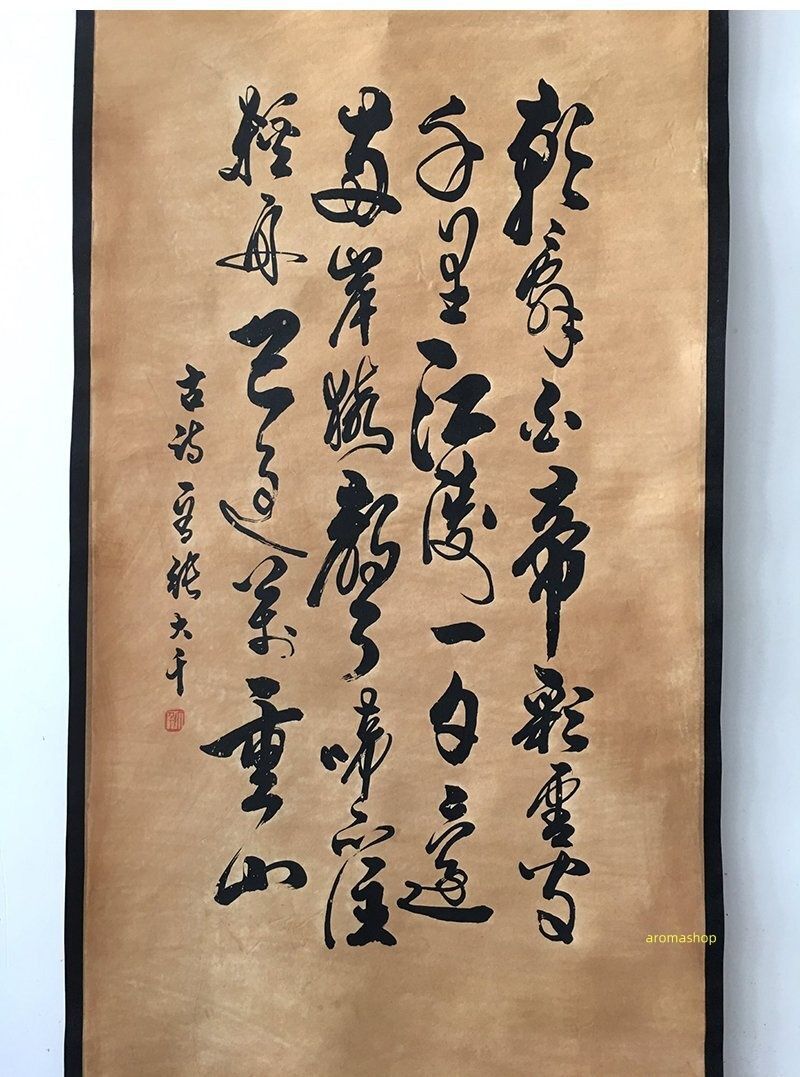 朝辭白帝彩雲間
千里江陵一日還
兩岸猿聲啼不住
輕舟已過萬重山
古詩一首張大千
aromashop